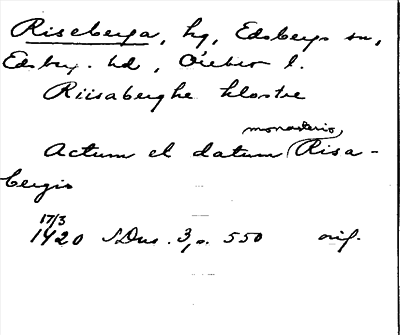 Riseberga, kg, Edsbergs sn,
Edsberg. hd, Örebro l.
Riisaberghe klostre
monasterio
Actum et datum Risa-
bergis
17/3
1420 SDns. 3, s. 550 orig.